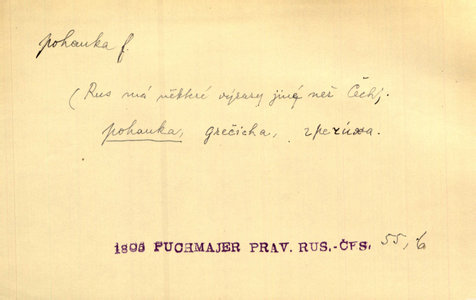 pohanka f.
(Rus má některé výrazy jiné než Čech):
pohanka, grečicha,
1805 PUCHMAJER PRAV. RUS.-ČES. 55,